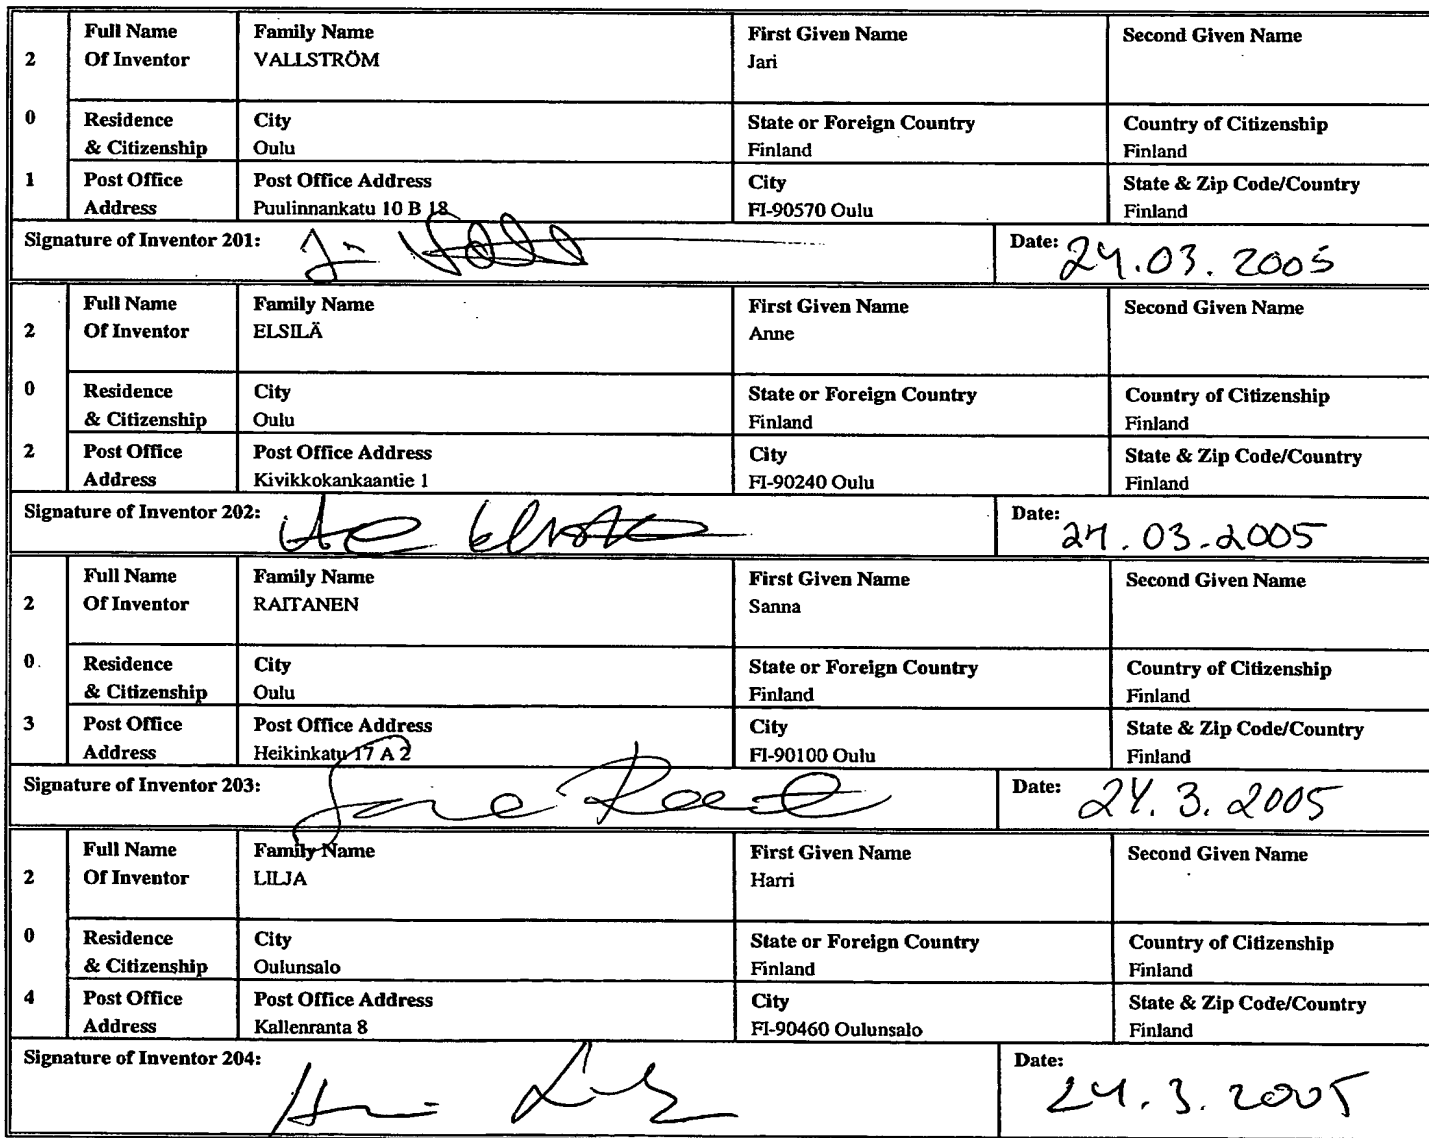 2 Full Name Of Inventor Family Name VALLSTRÖM First Given Name Jari Second Given Name
0 Residence & Citizenship City Oulu State or Foreign Country Finland Country of Citizenship Finland
1 Post Office Address Post Office Address Puulinnankatu 10 B 18 City FI-90570 Oulu State & Zip Code/Country Finland
Signature of Inventor 201: Date: 24.03.2005
2 Full Name Of Inventor Family Name ELSILÄ First Given Name Anne Second Given Name
0 Residence & Citizenship City Oulu State or Foreign Country Finland Country of Citizenship Finland
2 Post Office Address Post Office Address Kivikkokankaantie 1 City FI-90240 Oulu State & Zip Code/Country Finland
Signature of Inventor 202: Date: 24.03.2005
2 Full Name Of Inventor Family Name RAITANEN First Given Name Sanna Second Given Name
0 Residence & Citizenship City Oulu State or Foreign Country Finland Country of Citizenship Finland
3 Post Office Address Post Office Address Heikinkatu 17 A 2 City FI-90100 Oulu State & Zip Code/Country Finland
Signature of Inventor 203: Date: 24.3.2005
2 Full Name Of Inventor Family Name LILJA First Given Name Harri Second Given Name
0 Residence & Citizenship City Oulunsalo State or Foreign Country Finland Country of Citizenship Finland
4 Post Office Address Post Office Address Kallenranta 8 City FI-90460 Oulunsalo State & Zip Code/Country Finland
Signature of Inventor 204: Date: 24.3.2005